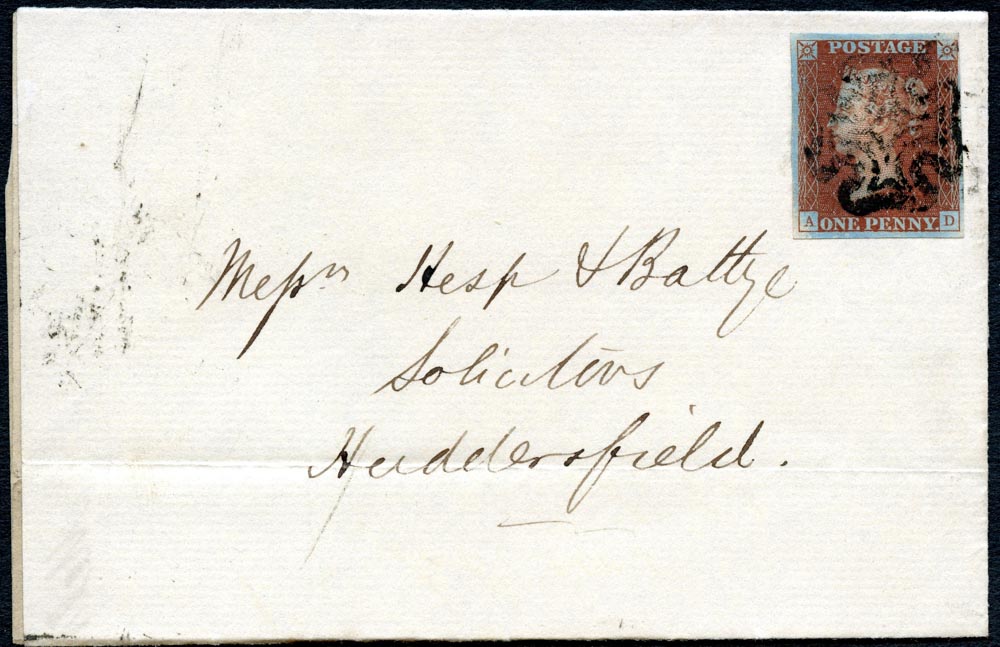 POSTAGE
A ONE PENNY. D
Messrs Hesp & Battye
Solicitors
Huddersfield.